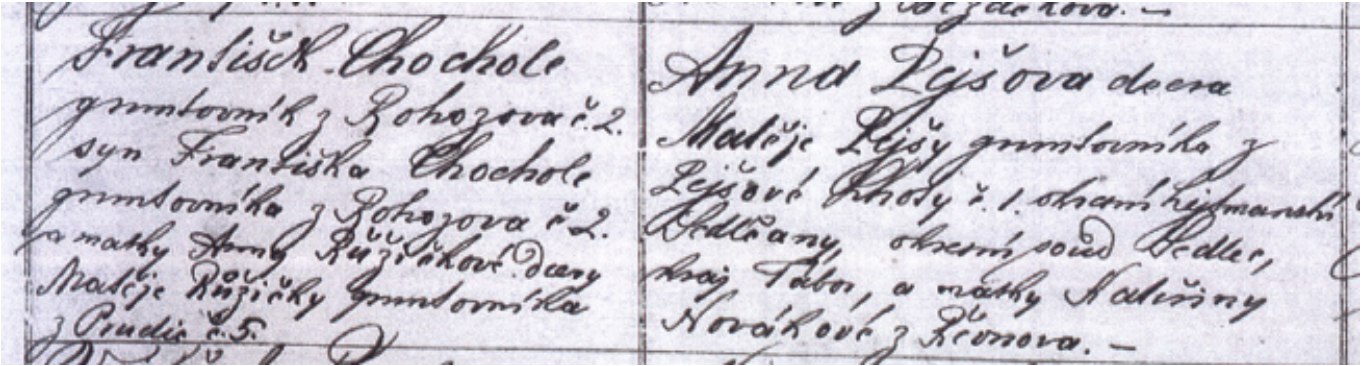 z Bezděkova. —
František Chochole
gruntovník z Rohozova č. 2.
syn Františka Chochole
gruntovníka z Rohozova č 2.
a matky Anny Růžičkové dcery
Matěje Růžičky gruntovníka
z Prudic č. 5.
Anna Pejšova dcera
Matěje Pejšy gruntovníka z
Pejšové Lhoty č. 1. okresní hejtmanství
Sedlčany, okresní soud Sedlec,
kraj Tábor, a matky Kateřiny
Novákové z Řevnova. —